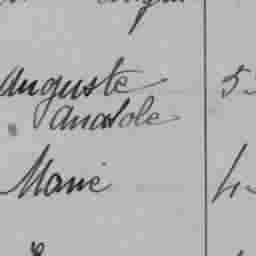 Auguste 5
Anatole
Marie 4